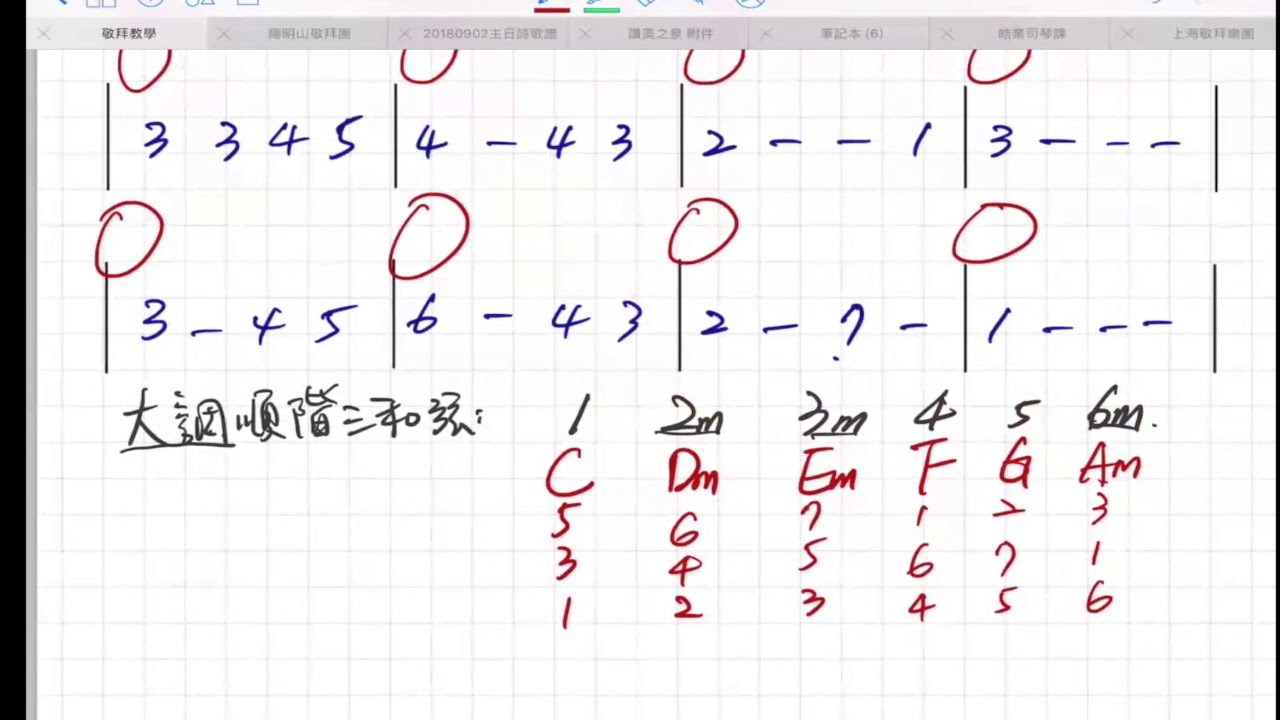 敬拜教學 陽明山敬拜團 20180902主日詩歌譜 讚美之泉 附件 筆記本 (6) 皓業司琴課 上海敬拜樂團
3 3 4 5 | 4 - 4 3 | 2 - - 1 | 3 - - - |
3 - 4 5 | 6 - 4 3 | 2 - 7 - | 1 - - - |
大調順階三和弦: 1 2m 3m 4 5 6m.
C Dm Em F G Am
5 6 7 1 2 3
3 4 5 6 7 1
1 2 3 4 5 6